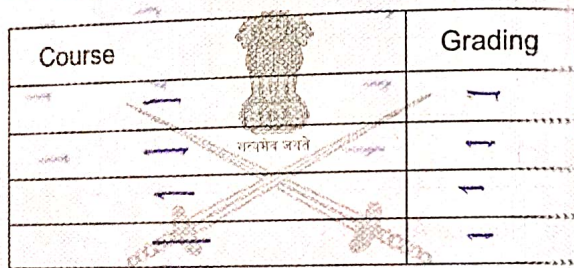 Course Grading
— —
सत्यमेव जयते
— —
— —
— —